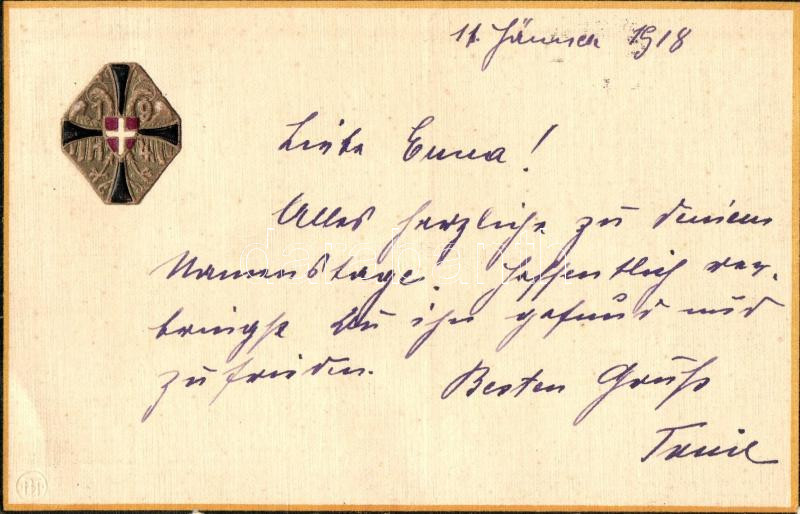 11. Jänner 1918
Liebe Emma!
Alles herzliche zu deinem
Namenstage. Hoffentlich ver-
bringst Du ihn gesund und
zufrieden.
Besten Gruß